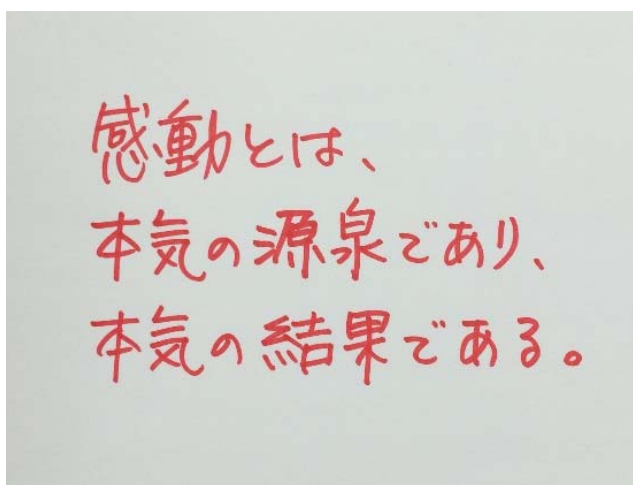 感動とは、
本気の源泉であり、
本気の結果である。